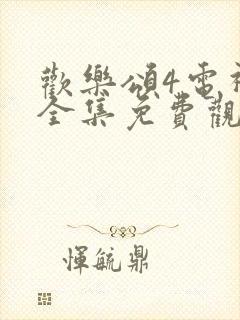 歡樂頌4電視
全集免費觀
惲毓鼎